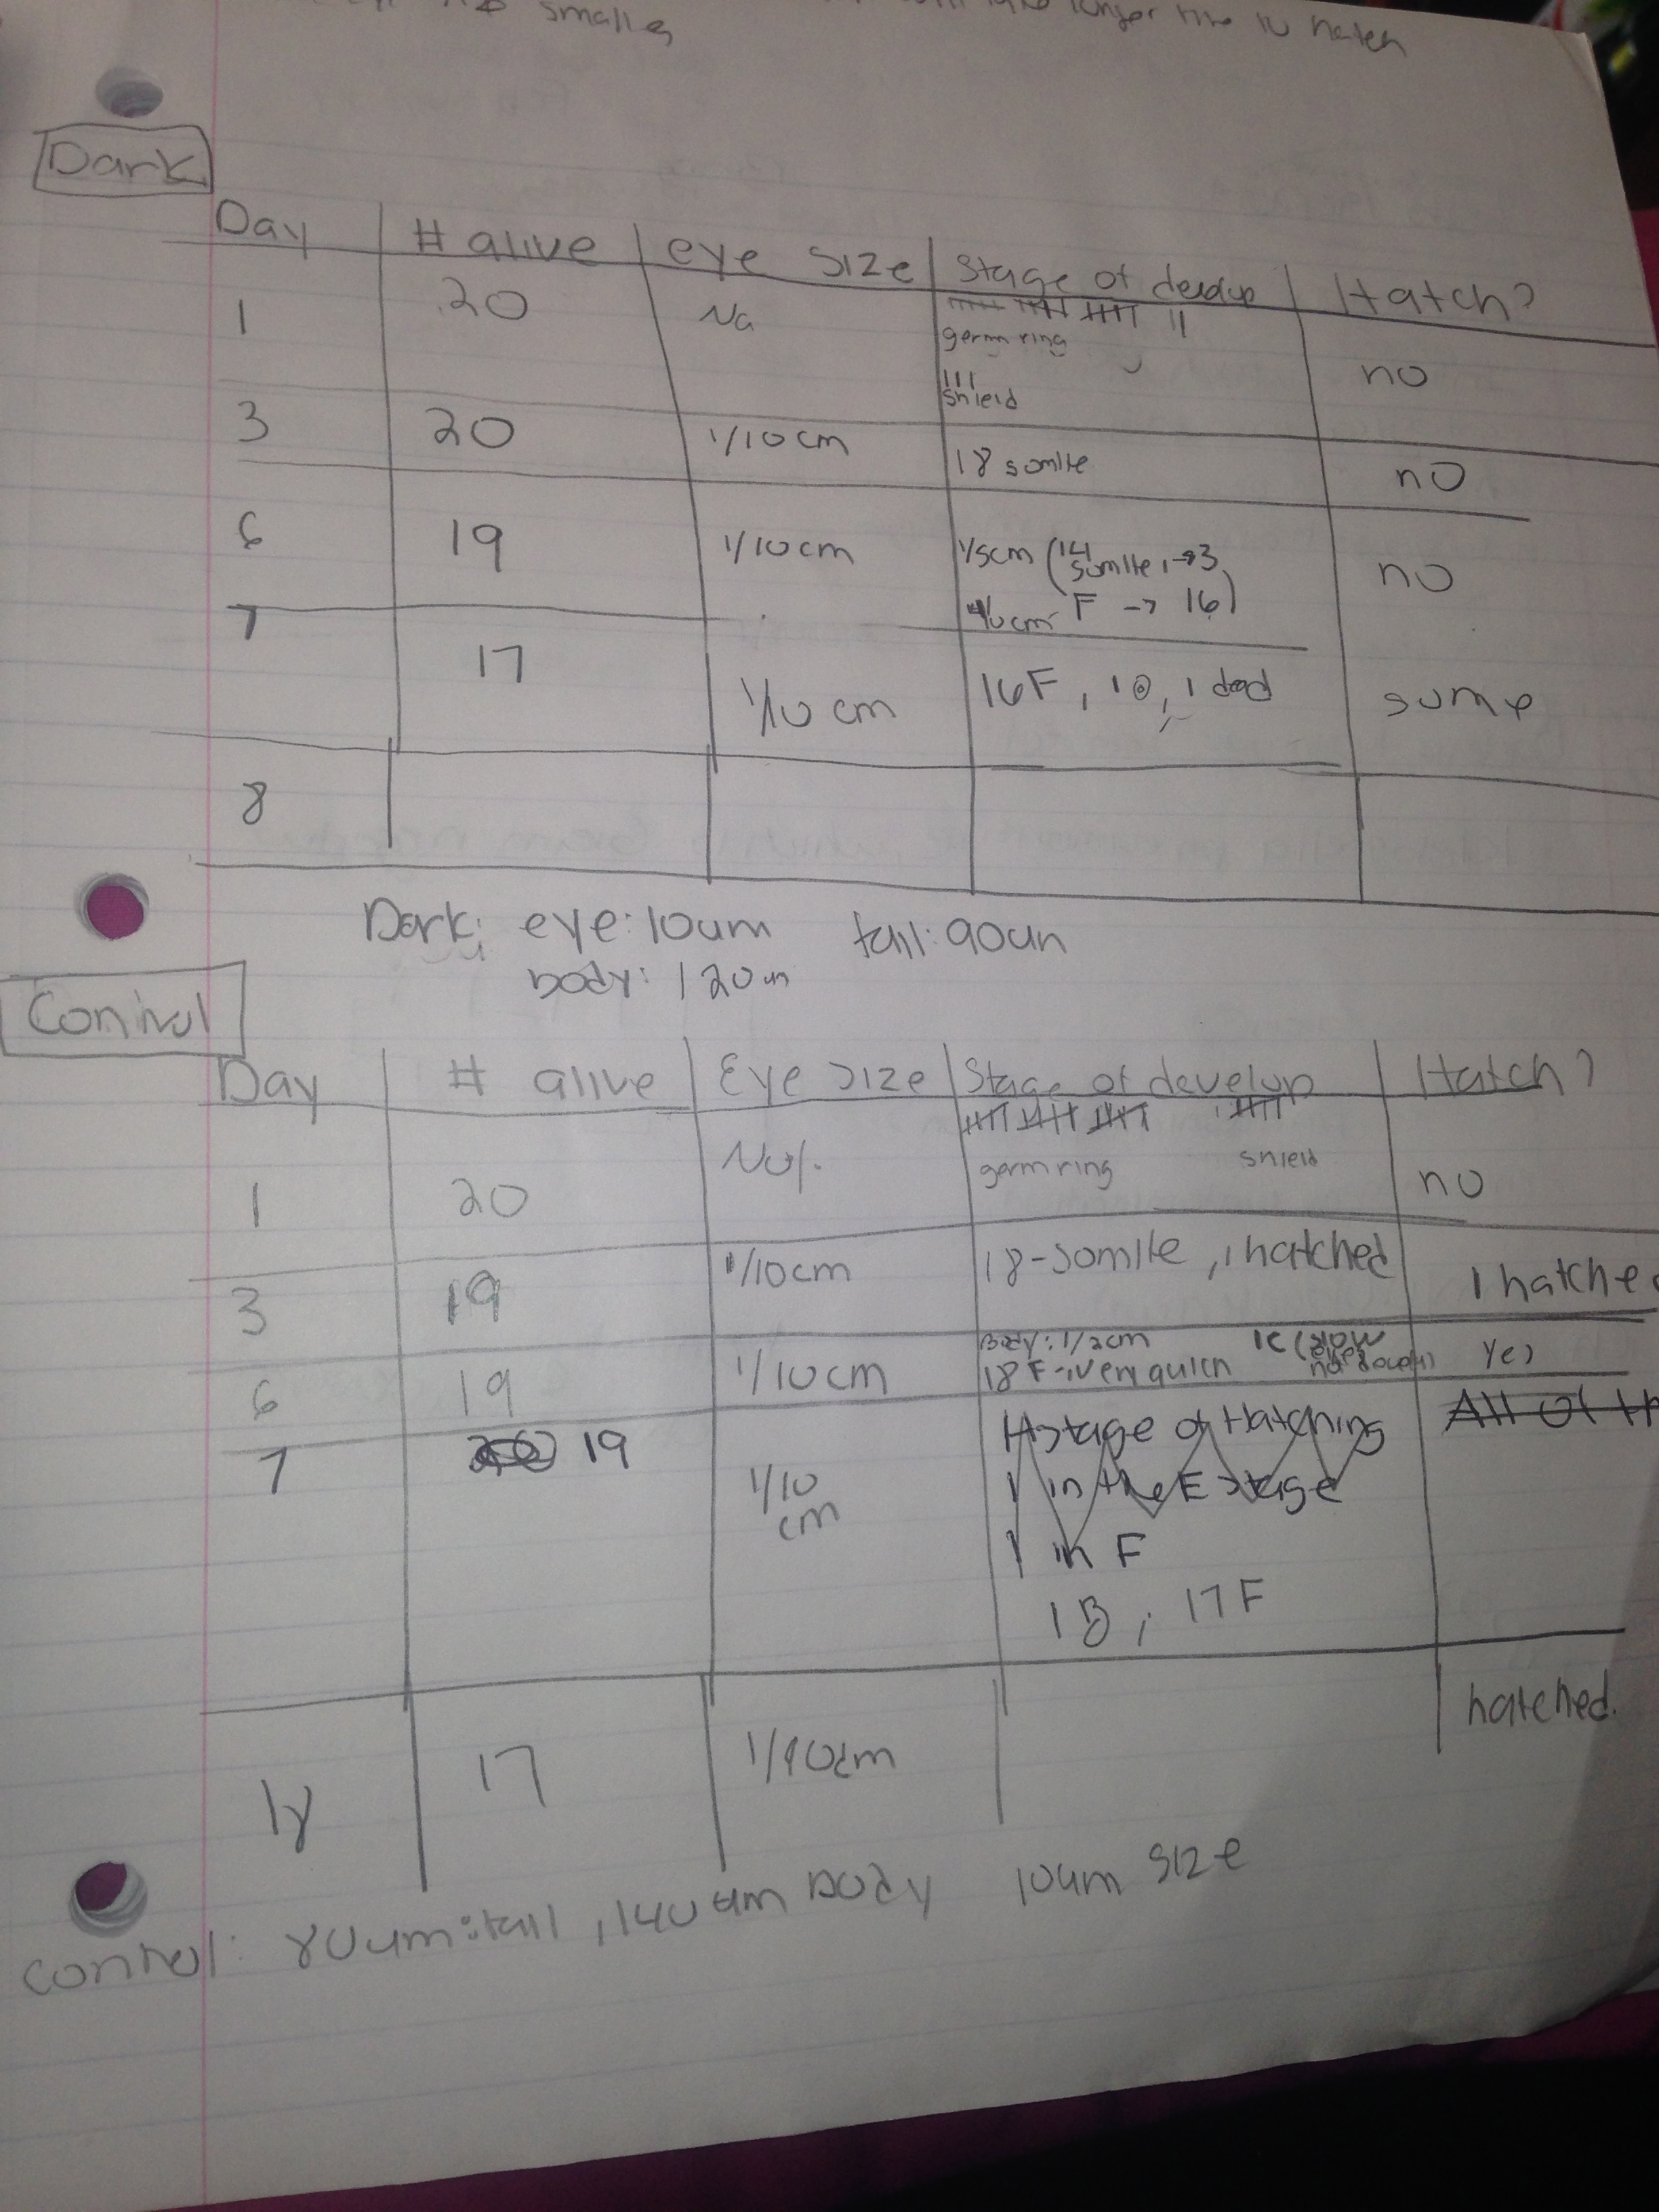 smaller
longer time to hatch
Dark
Day # alive eye size Stage of develop Hatch?
1 20 Na germ ring no
shield
3 20 1/10 cm 18 somite no
6 19 1/10 cm 1/5cm (14 somite, → 3 no
F → 16)
7 17 1/10 cm 16F, 1 dead some
8
Dark: eye: 10um tail: 90um
body: 120um
Control
Day # alive Eye size Stage of develop Hatch?
1 20 germ ring shield no
3 19 1/10cm 18-somite, 1 hatched 1 hatche
6 19 1/10cm Body: 1/2cm 1C (slow yes
18 F → very quick
7 19 1/10 cm Hstage of Hatching All of th
1 in the E stage
1 in F
1B, 17F
17 1/10cm hatched.
control: 80um: tail, 140um body 10um size